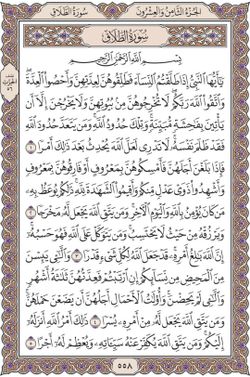 الجزء الثامن والعشرون
سورة الطلاق
سُورَةُ الطَّلَاقِ
بِسْمِ اللَّهِ الرَّحْمَٰنِ الرَّحِيمِ
يَا أَيُّهَا النَّبِيُّ إِذَا طَلَّقْتُمُ النِّسَاءَ فَطَلِّقُوهُنَّ لِعِدَّتِهِنَّ وَأَحْصُوا الْعِدَّةَ
وَاتَّقُوا اللَّهَ رَبَّكُمْ لَا تُخْرِجُوهُنَّ مِنْ بُيُوتِهِنَّ وَلَا يَخْرُجْنَ إِلَّا أَنْ
يَأْتِينَ بِفَاحِشَةٍ مُبَيِّنَةٍ وَتِلْكَ حُدُودُ اللَّهِ وَمَنْ يَتَعَدَّ حُدُودَ اللَّهِ
فَقَدْ ظَلَمَ نَفْسَهُ لَا تَدْرِي لَعَلَّ اللَّهَ يُحْدِثُ بَعْدَ ذَٰلِكَ أَمْرًا ١
فَإِذَا بَلَغْنَ أَجَلَهُنَّ فَأَمْسِكُوهُنَّ بِمَعْرُوفٍ أَوْ فَارِقُوهُنَّ بِمَعْرُوفٍ
وَأَشْهِدُوا ذَوَيْ عَدْلٍ مِنْكُمْ وَأَقِيمُوا الشَّهَادَةَ لِلَّهِ ذَٰلِكُمْ يُوعَظُ بِهِ
مَنْ كَانَ يُؤْمِنُ بِاللَّهِ وَالْيَوْمِ الْآخِرِ وَمَنْ يَتَّقِ اللَّهَ يَجْعَلْ لَهُ مَخْرَجًا ٢
وَيَرْزُقْهُ مِنْ حَيْثُ لَا يَحْتَسِبُ وَمَنْ يَتَوَكَّلْ عَلَى اللَّهِ فَهُوَ حَسْبُهُ
إِنَّ اللَّهَ بَالِغُ أَمْرِهِ قَدْ جَعَلَ اللَّهُ لِكُلِّ شَيْءٍ قَدْرًا ٣ وَاللَّائِي يَئِسْنَ
مِنَ الْمَحِيضِ مِنْ نِسَائِكُمْ إِنِ ارْتَبْتُمْ فَعِدَّتُهُنَّ ثَلَاثَةُ أَشْهُرٍ
وَاللَّائِي لَمْ يَحِضْنَ وَأُولَاتُ الْأَحْمَالِ أَجَلُهُنَّ أَنْ يَضَعْنَ حَمْلَهُنَّ
وَمَنْ يَتَّقِ اللَّهَ يَجْعَلْ لَهُ مِنْ أَمْرِهِ يُسْرًا ٤ ذَٰلِكَ أَمْرُ اللَّهِ أَنْزَلَهُ
إِلَيْكُمْ وَمَنْ يَتَّقِ اللَّهَ يُكَفِّرْ عَنْهُ سَيِّئَاتِهِ وَيُعْظِمْ لَهُ أَجْرًا ٥
٥٥٨